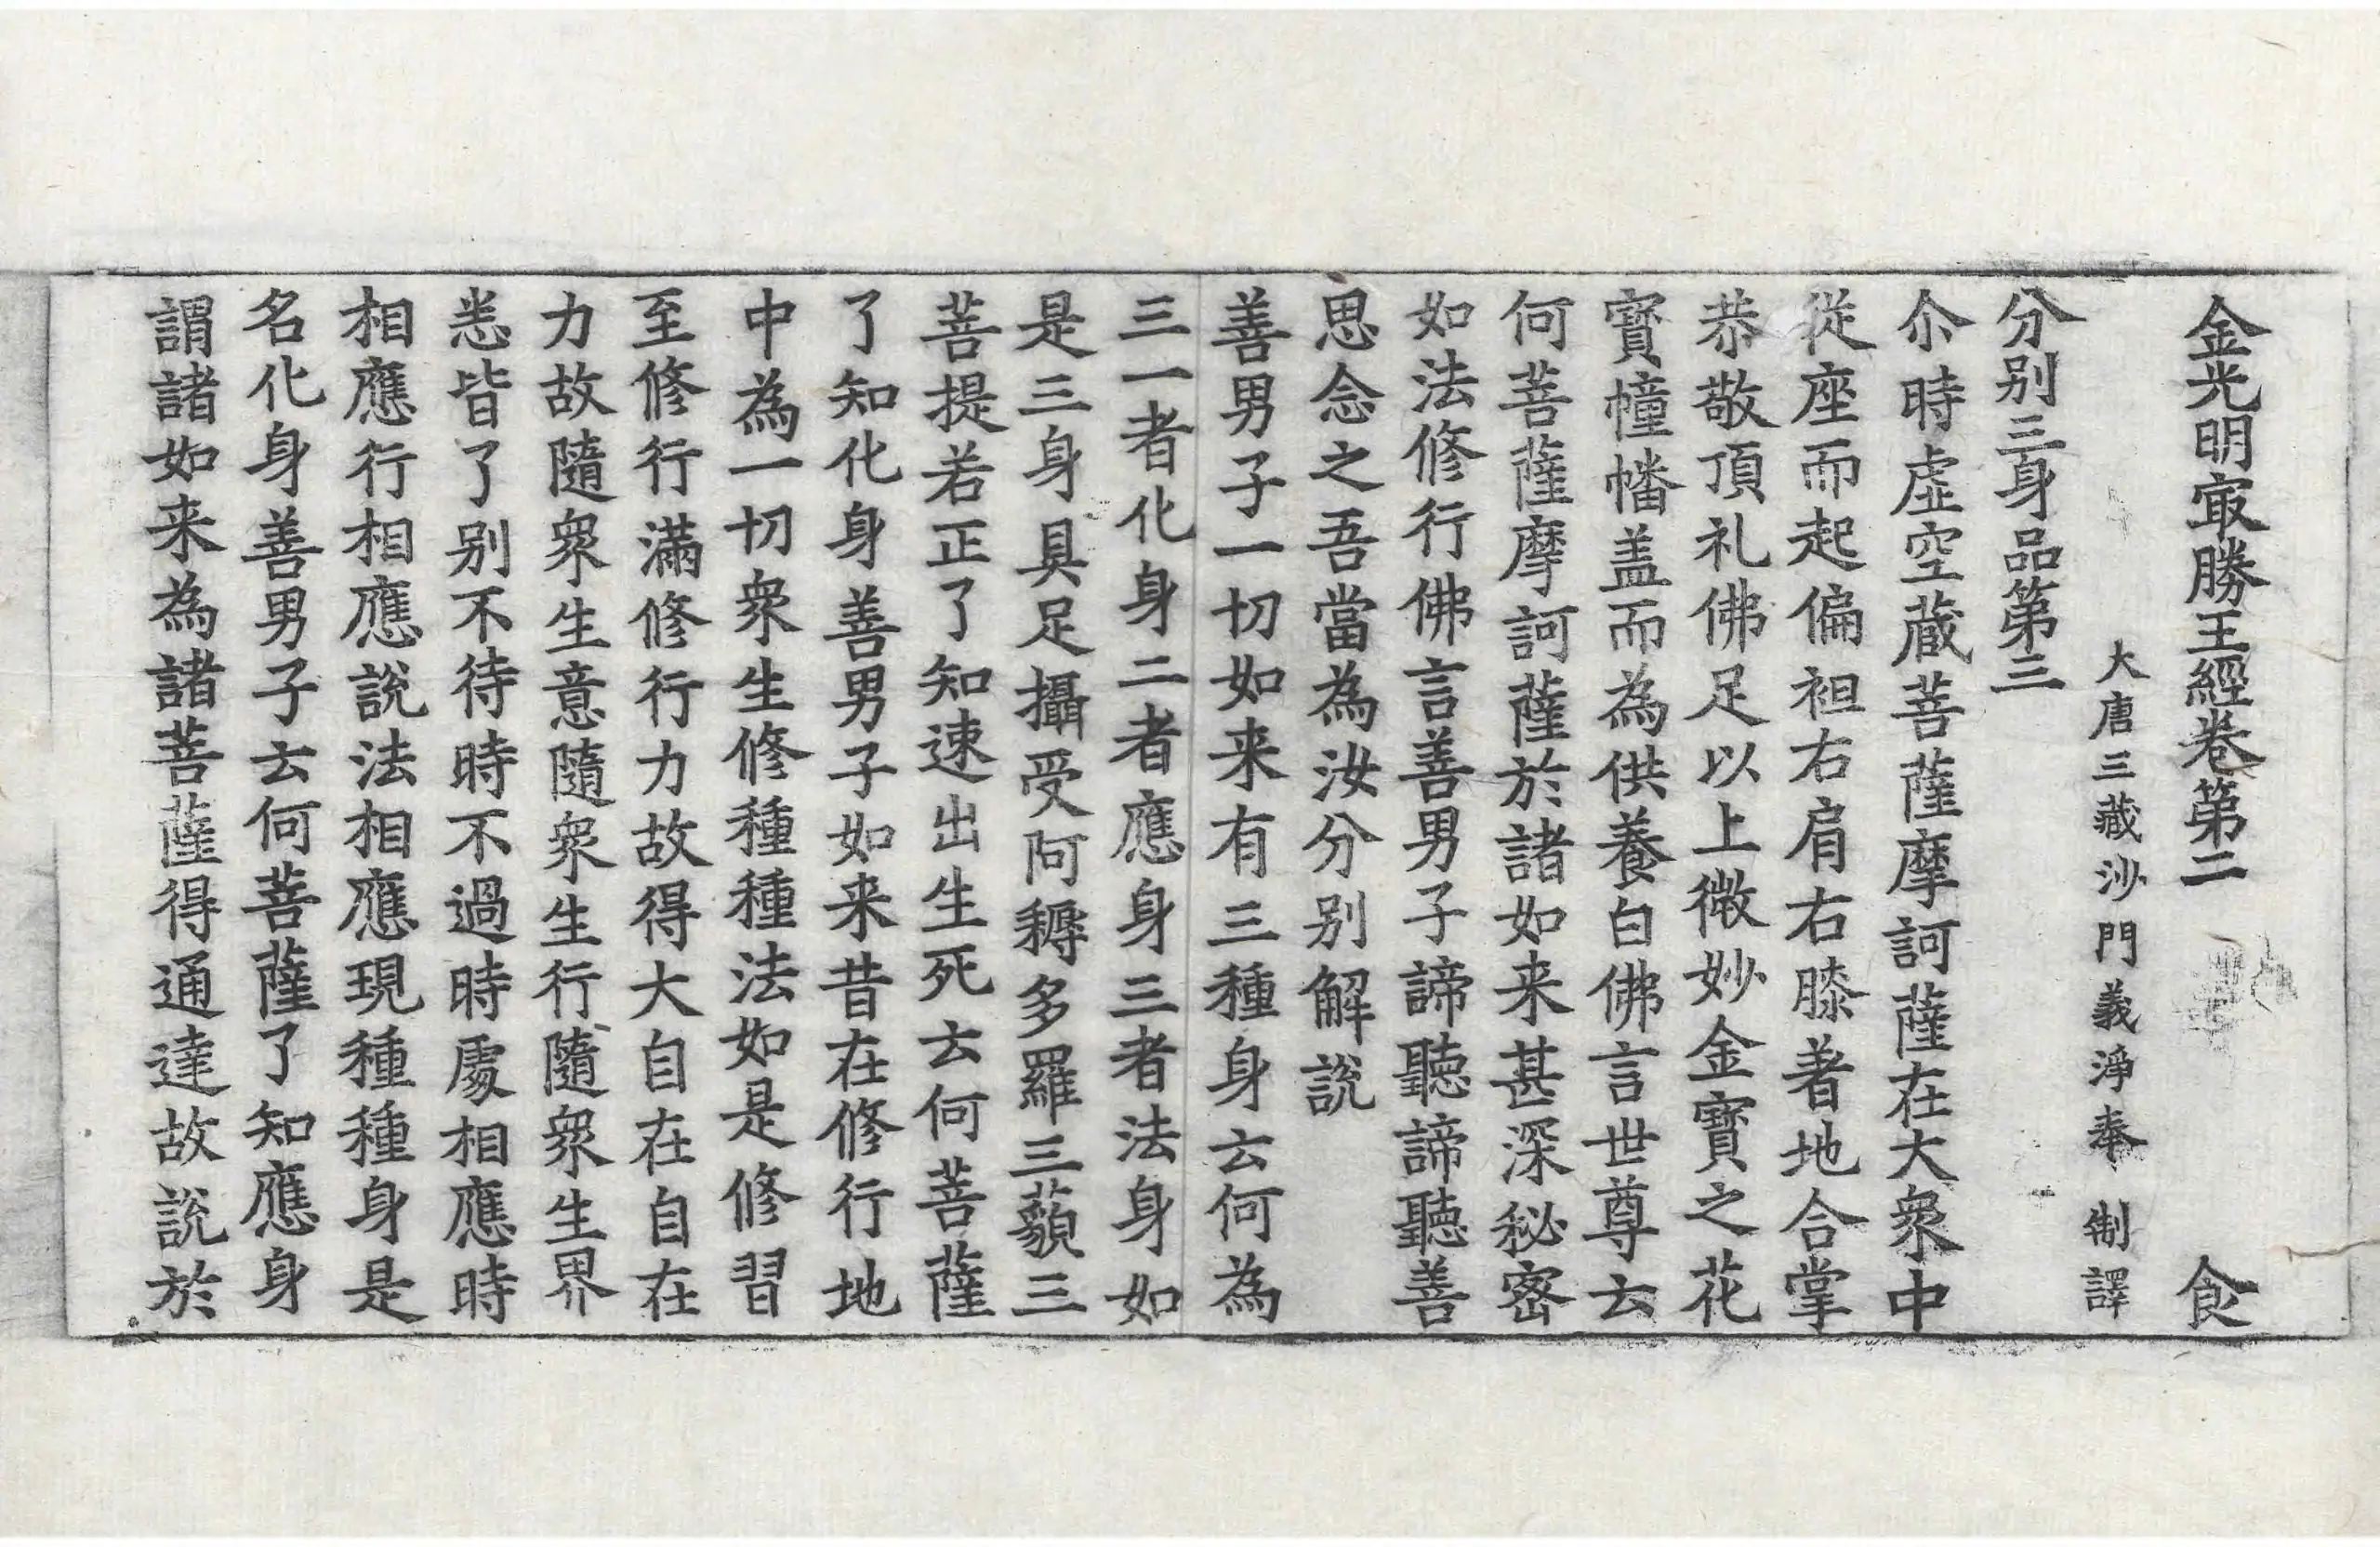 金光明㝡勝王經卷第二 食
大唐三藏沙門義淨奉 制譯
分别三身品第三
尒時虛空蔵菩薩摩訶薩在大衆中
從座而起偏袒右肩右膝著地合掌
恭敬頂礼佛足以上微妙金寶之花
寳幢幡盖而為供養白佛言世尊云
何菩薩摩訶薩於諸如来甚深秘密
如法修行佛言善男子諦聽諦聽善
思念之吾當為汝分别解說
善男子一切如来有三種身云何為
三一者化身二者應身三者法身如
是三身具足攝受阿耨多羅三藐三
菩提若正了知速出生死云何菩薩
了知化身善男子如来昔在修行地
中為一切衆生修種種法如是修習
至修行滿修行力故得大自在自在
力故隨衆生意隨衆生行隨衆生界
悉皆了别不待時不過時處相應時
相應行相應說法相應現種種身是
名化身善男子云何菩薩了知應身
謂諸如来為諸菩薩得通達故說於